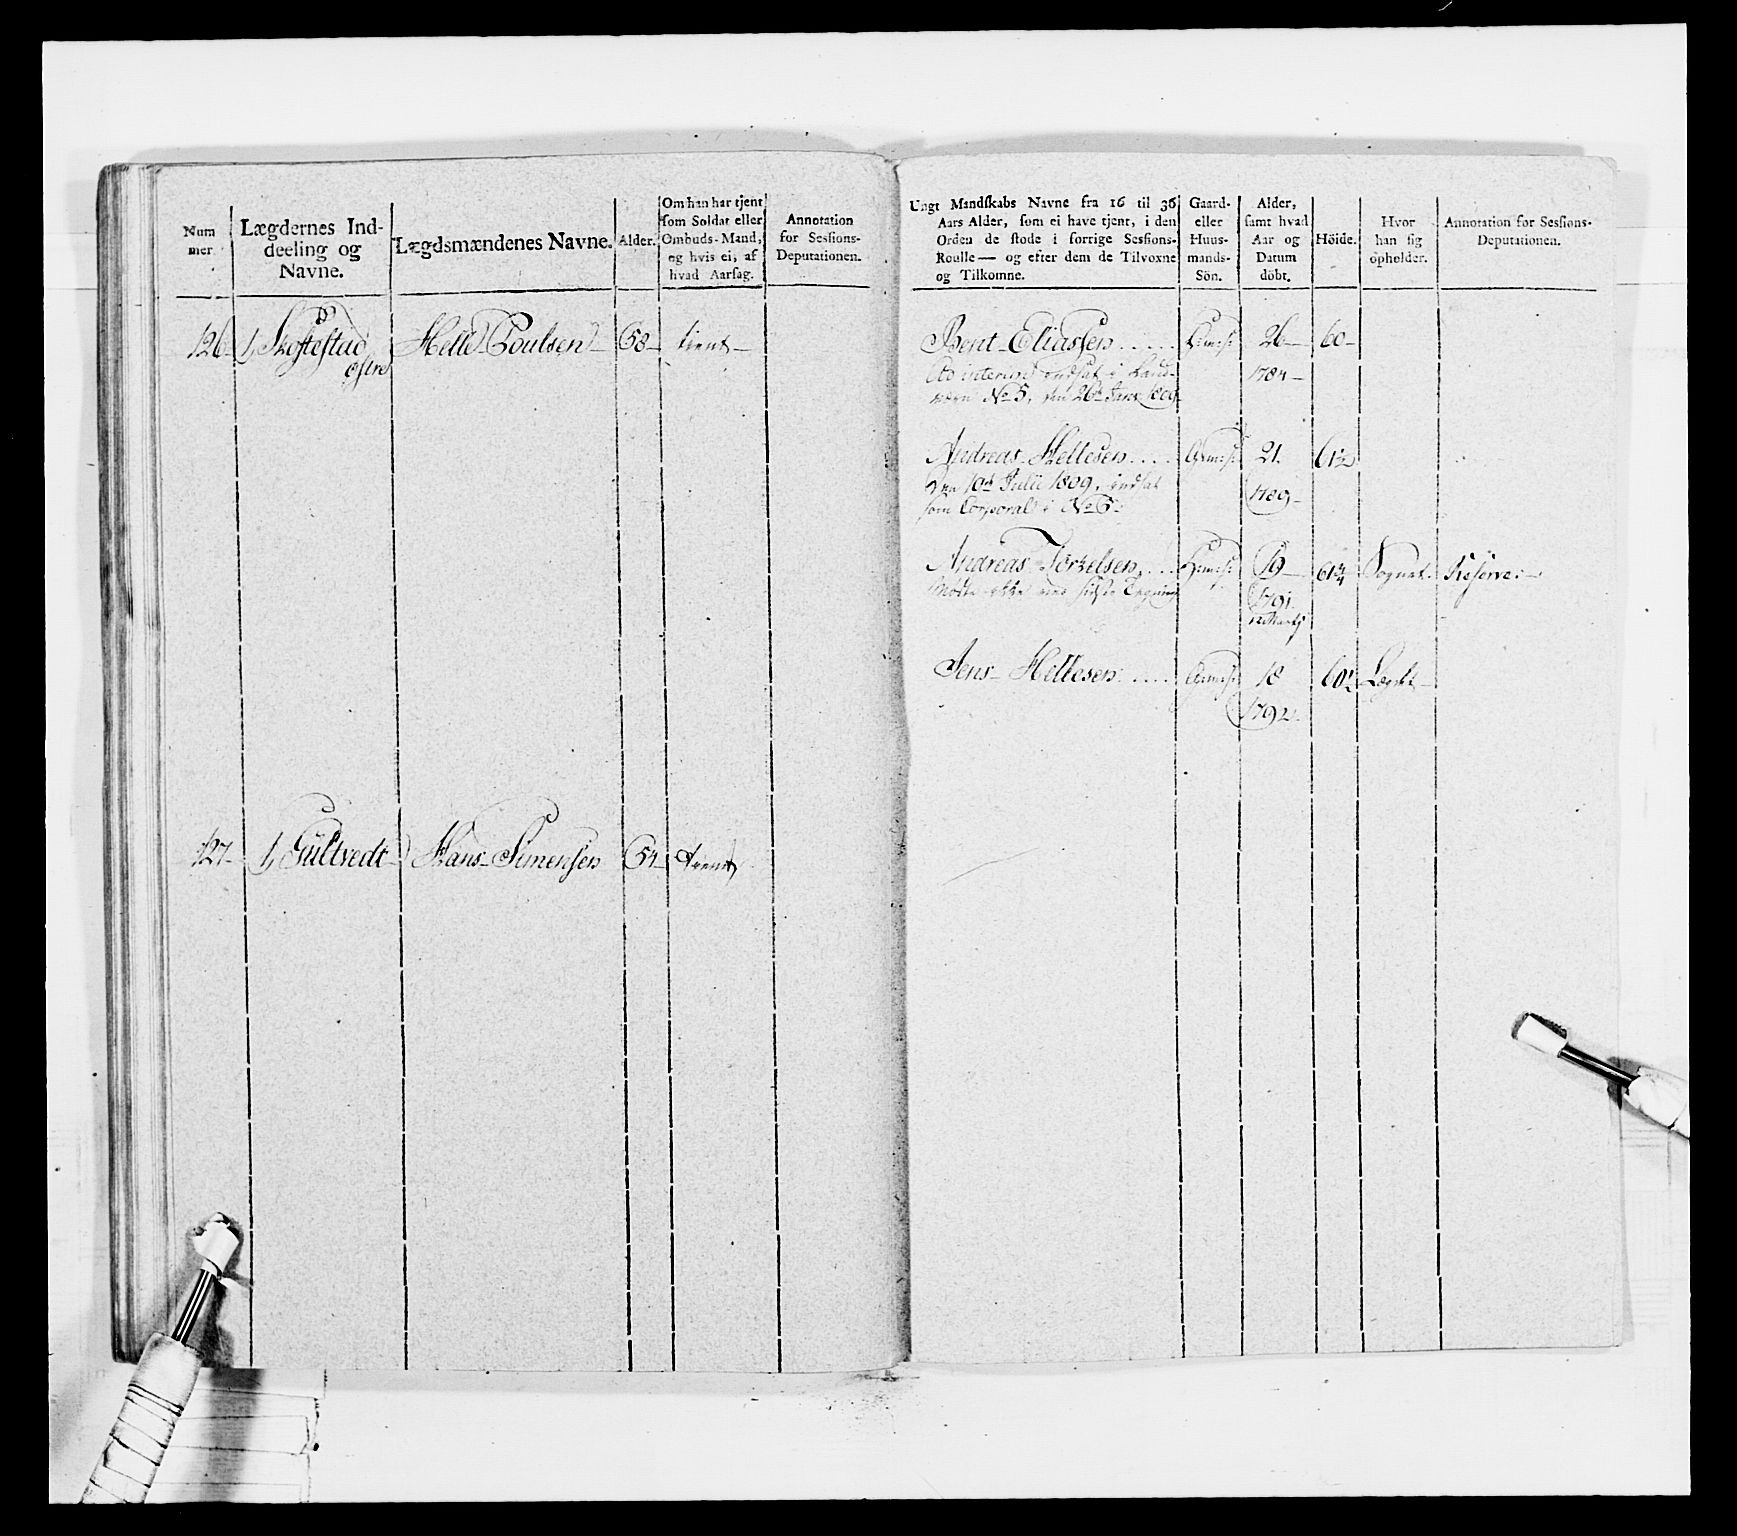 Num
mer
Lægdernes Ind-
deeling og
Navne.
Lægdsmændenes Navne.
Alder.
Om han har tjent
som Soldat eller
Ombuds-Mand,
og hvis ei, af
hvad Aarsag.
Annotation
for Sessions-
Deputationen.
126 1, Skoftestad Helle Poulsen 58 tient
østre
127 1, Gultvedt Hans Simensen 54 tient
Ungt Mandskabs Navne fra 16 til 36
Aars Alder, som ei have tjent, i den
Orden de stode i forrige Sessions-
Roulle — og efter dem de Tilvoxne
og Tilkomne.
Gaard-
eller
Huus-
mands-
Sön.
Alder,
samt hvad
Aar og
Datum
döbt.
Höide.
Hvor
han sig
opholder.
Annotation for Sessions-
Deputationen.
Bent Eliassen 26 60
Ad interim indsat i Land-
1784
værn No 5, den 26de Janr 1809
Andreas Hellesen 21. 61½
den 10de Julii 1809, indsat
1789
som Corporal i No 5
Andreas Torkelsen 19 61¾ Sognet Reserve
1791
12 Martz
Jens Hellesen 18 60½ Lægdet
1792